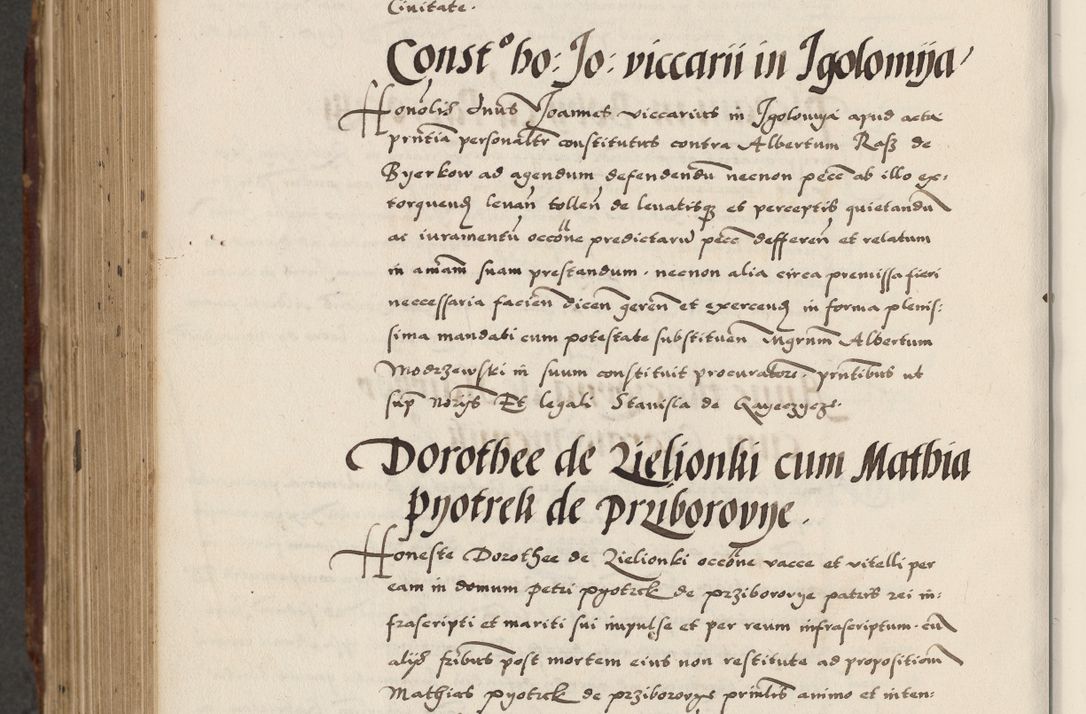 Civitate.
Const° ho: Jo: viccarii in Jgolomija
Honolis dnus Joannes viccarius in Jgolomya apud acta
prntia personalr constitutus contra Albertum Rasz de
Byerkow ad agendum defendendu necnon pecc ab illo ex:
torquend levan tollen de levatisq et perceptis quietandu
ac iuramentu occone predictaru pecc defferen et relatum
in amam suam prestandum. necnon alia circa premissa fieri
neccessaria facien dicen geren et exercend in forma plenis:
sima mandati cum potestate substituen Mgrum Albertum
Modrzewski in suum constituit procuratore. prntibus ut
sup norys Et legali Stanisla de
Dorothee de Zielionki cum Mathia
pyotrek de Prziborovye.
Honeste Dorothee de Zielionki occone vacce et vitelli per
eam in domum petri pyotrek de prziborovye patris rei in:
frascripti et mariti sui impulse et per reum infrascriptum. cu
alys fribus post mortem eius non restitute ad proposition
Mathias pyotrek de prziborovye primlis animo et inten: